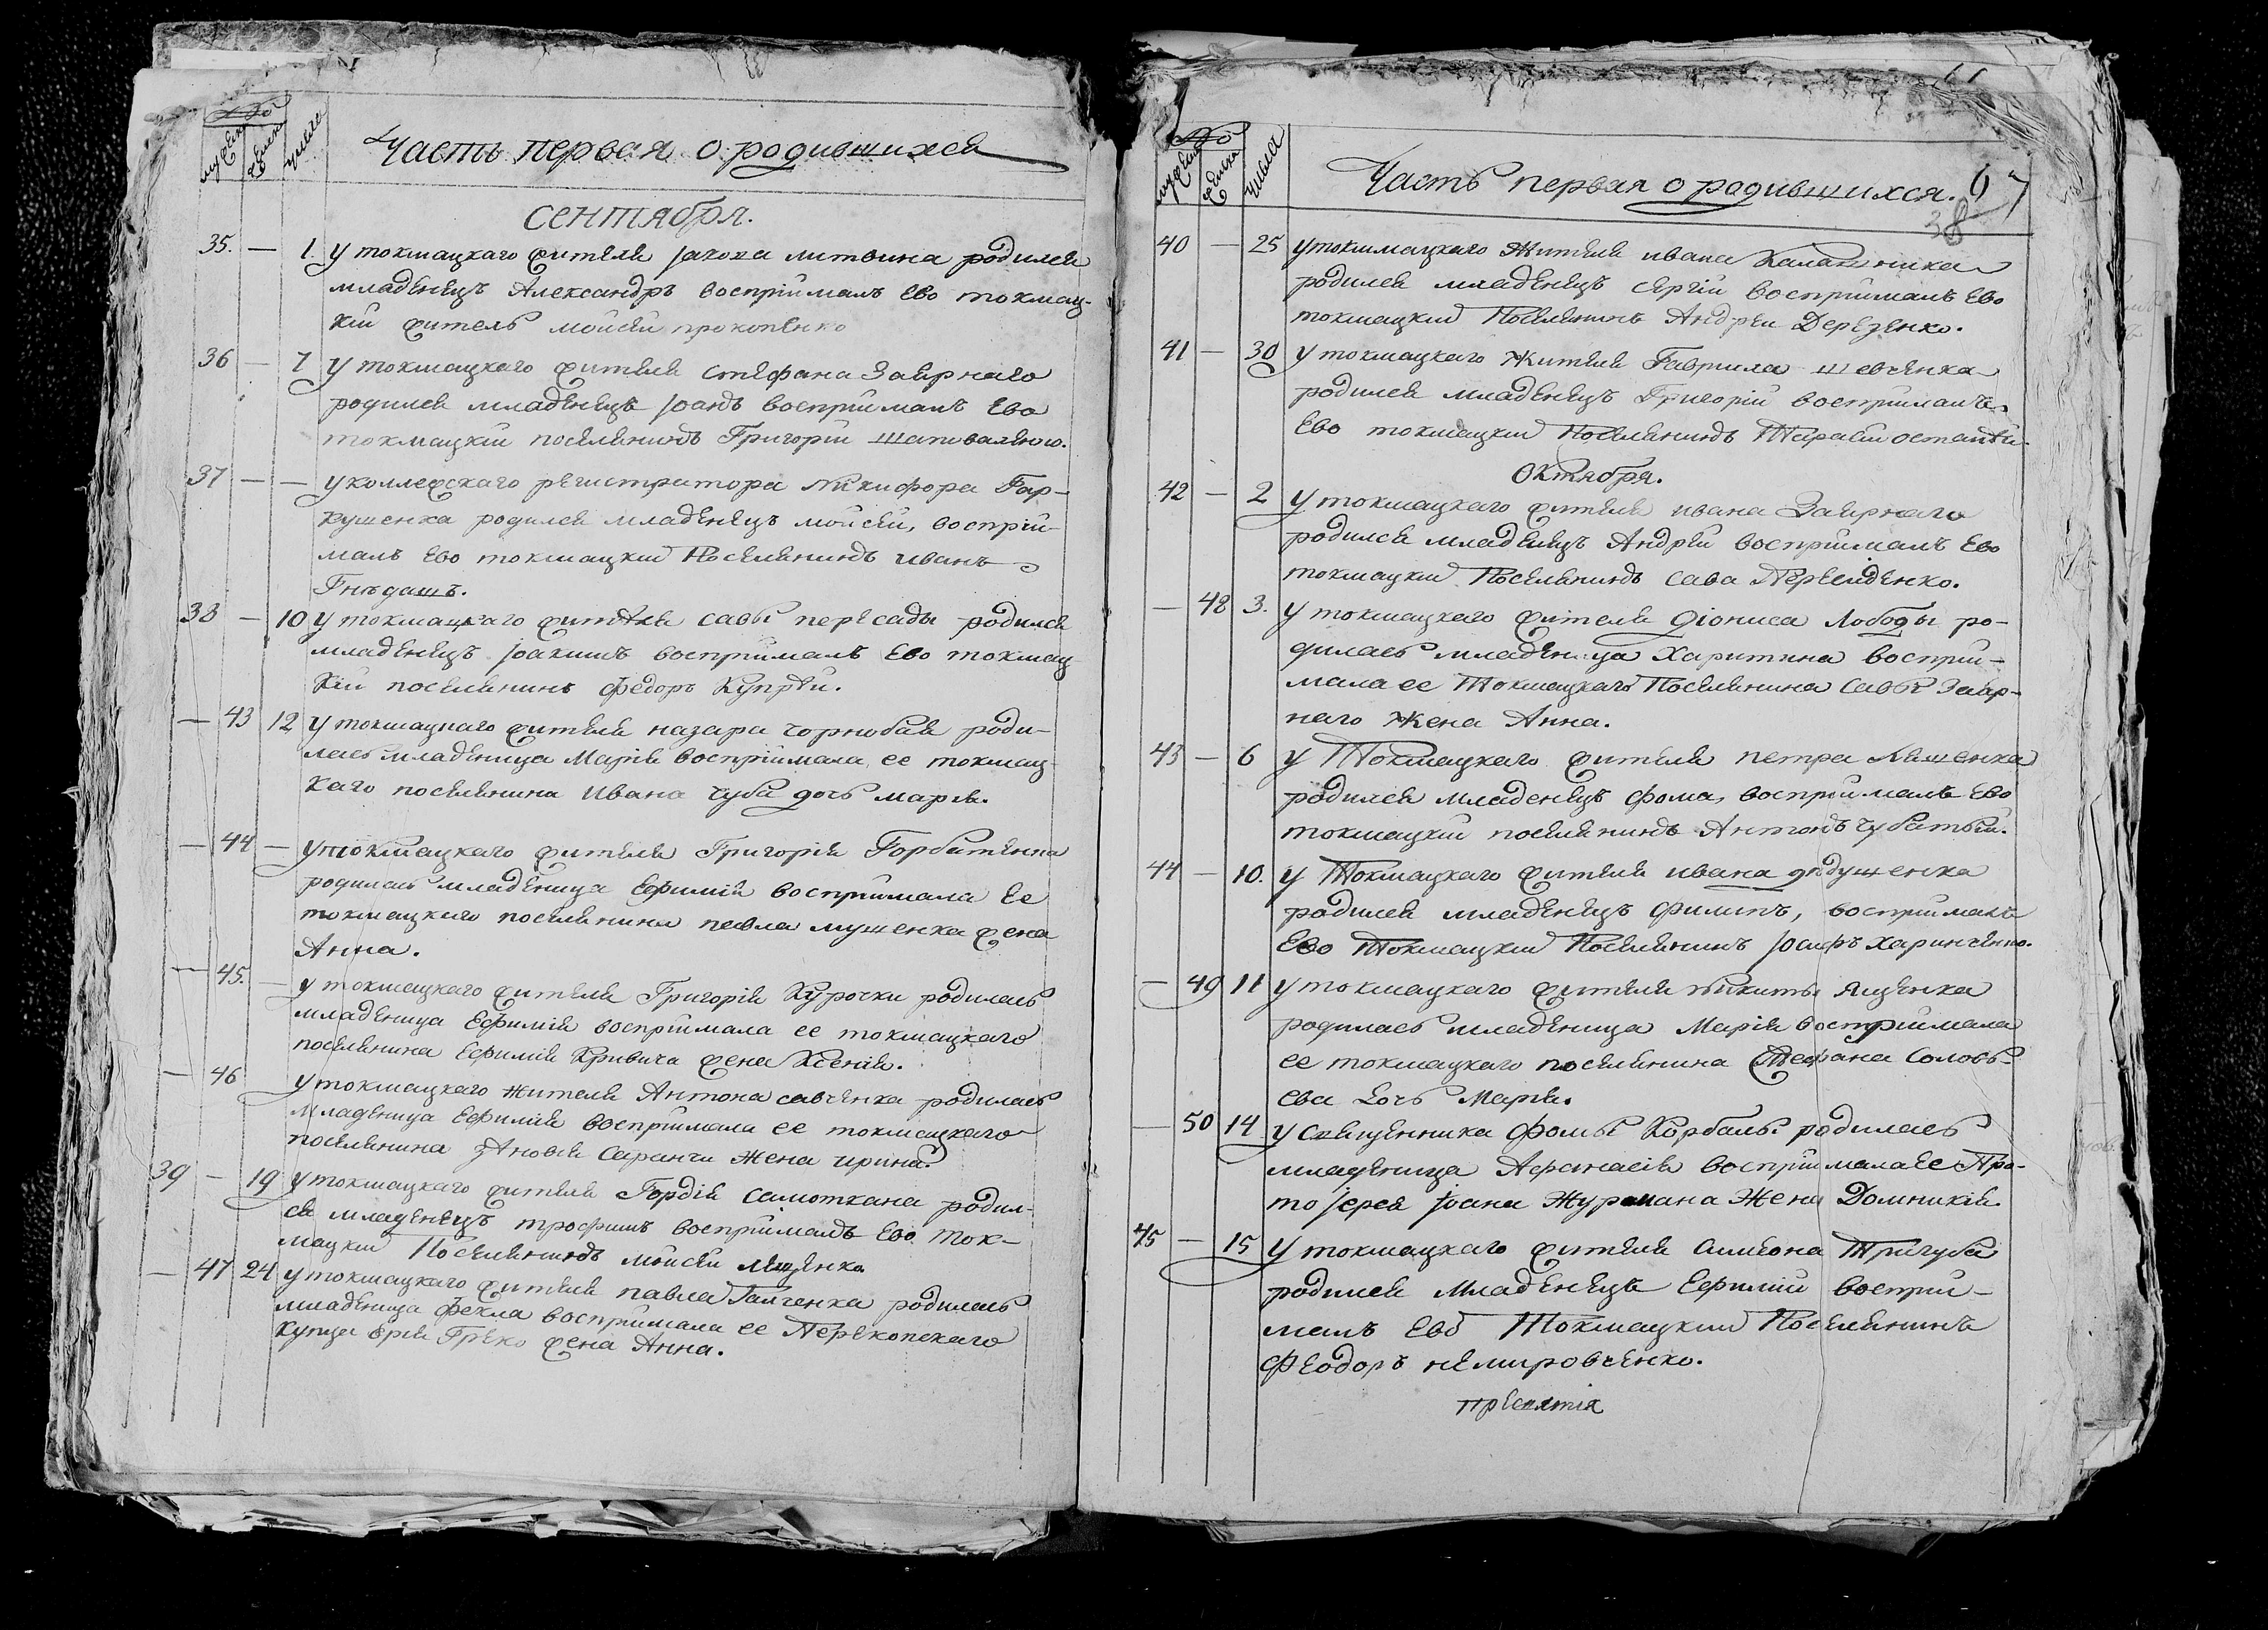 Число
мужеска
женска
числа
Часть первая о родившихся
сентября.
35. — 1. У токмацкаго жителя Іакова литвина родился
младенецъ Александръ воспріималъ Ево токмац-
кій житель мойсей прокопенко
36 — 7 У токмацкаго жителя стефана Заирнаго
родился младенецъ Іоанъ воспріималъ Ево
токмацкій поселянинъ Григорій шаповаленко.
37 — — У коллежскаго регистратора Никифора Гар-
кушенка родился младенецъ мойсей, воспрій-
малъ Ево токмацкій Поселянинъ иванъ
Гнѣдашъ.
38 — 10 У токмацкаго жителя савы пересады родился
младенецъ Іоакимъ воспріималъ Ево токмац-
кій поселянинъ федоръ Купрѣй.
— 43 12 У токмацкаго жителя назара чорнобая роди-
лась младеница Марія воспріймала ее токмац-
каго поселянина Ивана чуба дочь марія.
— 44 — У токмацкаго жителя Григорія Горбатенка
родилась младеница Ефимія воспріймала Ее
токмацкаго поселянина павла мушенка жена
Анна.
— 45. — У токмацкаго жителя Григорія Курочки родилась
младеница Ефимія воспріймала ее токмацкаго
поселянина Ефимія Кривича жена Ксенія.
— 46 У токмацкаго жителя Антона савченка родилась
младеница Ефимія воспріймала ее токмацкаго
поселянина Саранчи жена ирина.
39 — 19 У токмацкаго жителя Гордія самоткана родил-
ся младенецъ трофимъ воспріималъ Ево ток-
мацкій Поселянинъ мойсей лященко
— 47 24 У токмацкаго жителя павла Галченка родилась
младеница фекла воспріймала ее Перекопскаго
купца Грека жена Анна.
Число
мужеска
женска
числа
Часть первая о родившихся.
67
38
40 — 25 У токмацкаго Жителя ивана Калашника
родился младенецъ сергій воспріималъ Ево
токмацкій Поселянинъ Андрей Дерезенко.
41 — 30 У токмацкаго Жителя Гаврила шевченка
родился младенецъ Григорій воспріималъ
Ево токмацкій Поселянинъ Тарасій остапѣй.
Октября.
42 — 2 У токмацкаго жителя ивана Заирнаго
родился младенецъ Андрей воспріималъ Ево
токмацкій Поселянинъ сава
— 48 3. У токмацкаго жителя Діониса Лободы ро-
дилась младеница Харитина воспрій-
мала ее Токмацкаго Поселянина Савы Заир-
наго Жена Анна.
43 — 6 У Токмацкаго жителя петра Ляшенка
родился младенецъ фома, воспріималъ Ево
токмацкій поселянинъ Антонъ чубатый.
44 — 10. У Токмацкаго жителя ивана дѣдушенка
родился младенецъ филипъ, воспріималъ
Ево Токмацкій Поселянинъ Іосифъ харинченко.
— 49 11 У токмацкаго жителя никиты яценка
родилась младеница Марія воспріймала
ее токмацкаго поселянина Стефана Соловь-
ева Дочь Марія.
— 50 14 У Священника фомы Корбалы родилась
младеница Афанасія воспріймала Ее Про-
тоіерея Іоана Журмана Жена Домникія.
45 — 15 У токмацкаго жителя симеона Тригуба
родился Младенецъ Ефимій воспрій-
малъ Ево Токмацкій Поселянинъ
Феодоръ немировченко.